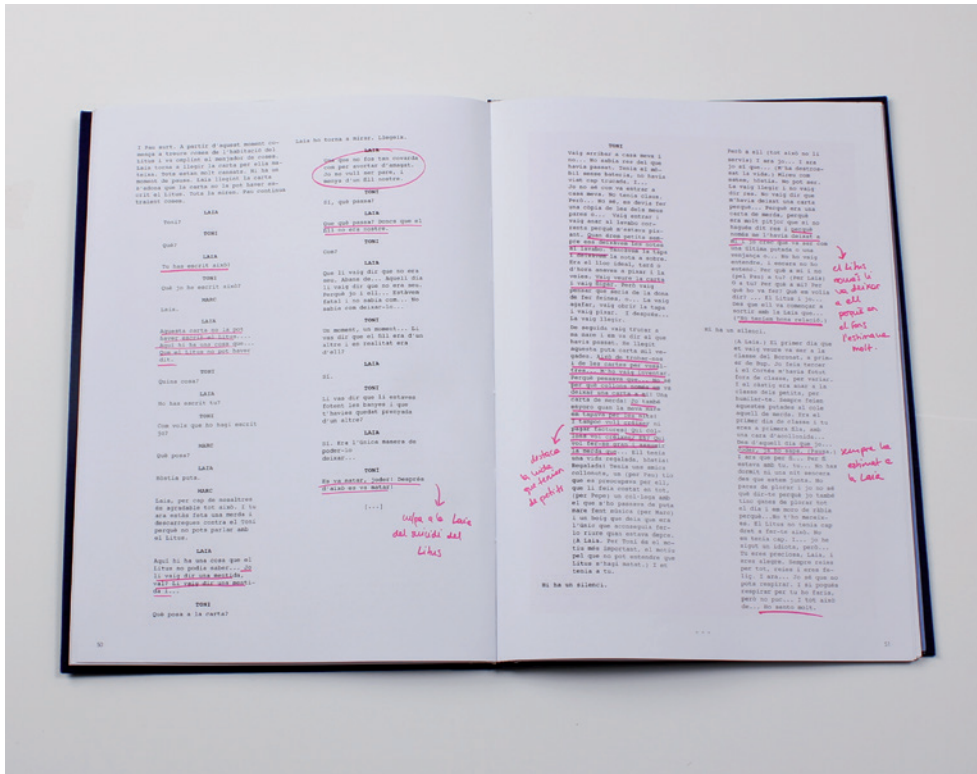 I Pau sort. A partir d'aquest moment co-
mença a treure coses de l'habitació del
Litus i va replint el menjador de coses.
Laia torna a llegir la carta per ella ma-
teixa. Tots estan molt cansats. Hi ha un
moment de pausa. Laia llegint la carta
s'adona que la carta no la pot haver es-
crit el Litus. Tots la miren. Pau continua
traient coses.
LAIA
Toni?
TONI
Què?
LAIA
Tu has escrit això?
TONI
Què jo he escrit això?
MARC
Laia.
LAIA
Aquesta carta no la pot
haver escrit el Litus...
Aquí hi ha una cosa que...
Que el Litus no pot haver
dit.
TONI
Quina cosa?
LAIA
No has escrit tu?
TONI
Com vols que ho hagi escrit
jo?
MARC
Què posa?
LAIA
Hòstia puta.
MARC
Laia, per cap de nosaltres
és agradable tot això. I tu
ara estàs feta una merda i
descarregues contra el Toni
perquè no pots parlar amb
el Litus.
LAIA
Aquí hi ha una cosa que el
Litus no podia saber... Jo
li vaig dir una mentida,
val? Li vaig dir una menti-
da i...
TONI
Què posa a la carta?
50
Laia ho torna a mirar. Llegeix.
LAIA
Que que no fos tan covarda
com per avortar d'amagat.
Jo no vull ser pare, i
menys d'un fill nostre.
TONI
Sí, què passa?
LAIA
Que què passa? Doncs que el
fill no era nostre.
TONI
Com?
LAIA
Que li vaig dir que no era
seu. Abans de... Aquell dia
li vaig dir que no era seu.
Perquè jo i ell... Estàvem
fatal i no sabia com... No
sabia com deixar-lo...
TONI
Un moment, un moment... Li
vas dir que el fill era d'un
altre i en realitat era
d'ell?
LAIA
Sí.
TONI
Li vas dir que li estaves
fotent les banyes i que
t'havies quedat prenyada
d'un altre?
LAIA
Sí. Era l'única manera de
poder-lo
deixar...
TONI
Es va matar, joder! Després
d'això es va matar!
[...]
culpa a la Laia
del suïcidi del
Litus
TONI
Vaig arribar a casa meva i
no... No sabia res del que
havia passat. Tenia el mò-
bil sense bateria, no havia
vist cap trucada. I...
Jo no sé com va entrar a
casa meva. No tenia claus.
Però... No sé, es devia fer
una còpia de les dels meus
pares o... Vaig entrar i
vaig anar al lavabo cor-
rents perquè m'estava pix-
ant. Quan érem petits sem-
pre ens deixàvem les notes
al lavabo. Tancàvem la tapa
i deixàvem la nota a sobre.
Era el lloc ideal, tard o
d'hora anaves a pixar i la
veies. Vaig veure la carta
i vaig flipar. Però vaig
pensar que seria de la dona
de fer feines, o... La vaig
agafar, vaig obrir la tapa
i vaig pixar. I després...
La vaig llegir.
De seguida vaig trucar a
sa mare i em va dir el que
havia passat. He llegit
aquesta puta carta mil ve-
gades. Això de trobar-nos
i de les cartes per vosal-
tres... M'ho vaig inventar.
Perquè pensava que... No sé
per què collons només em va
deixar una carta a mi! Una
carta de merda! Jo també
enyoro quan la meva mare
em tapava per les nits!
I tampoc vull cobrar ni
pagar factures! Qui coi-
lons vol cobrar! Per qui
vol fer-se gran i assumir
la merda que... Ell tenia
una vida regalada, hòstia!
Regalada! Tenia uns amics
collonuts, un (per Pau) tio
que es preocupava per ell,
que li feia costat en tot,
(per Pepe) un col·lega amb
el que s'ho passava de puta
mare fent música (per Marc)
i un boig que deia que era
l'únic que aconseguia fer-
lo riure quan estava depre.
(A Laia. Per Toni és el mo-
tiu més important, el motiu
pel que no pot entendre que
Litus s'hagi matat.) I et
tenia a tu.
Hi ha un silenci.
destaca
la vida
que tenien
de petits
Però a ell tot això no li
servia! I ara jo... I ara
jo el que... (M'ha destros-
sat la vida.) Mireu com
estem, hòstia. No pot ser.
La vaig llegir i no vaig
dir res. No vaig dir que
m'havia deixat una carta
perquè... Perquè era una
carta de merda, perquè
era molt pitjor que si no
hagués dit res i perquè
només me l'havia deixat a
mi i jo crec que va ser com
una última putada o una
venjança o... No ho vaig
entendre, i encara no ho
entenc. Per què a mi i no
(pel Pau) a tu? (Per Laia)
O a tu? Per què a mi? Per
què ho va fer? Què em volia
dir? ... El Litus i jo...
Des que ell va començar a
sortir amb la Laia que...
("No teníem bona relació.)
Hi ha un silenci.
(A Laia.) El primer dia que
et vaig veure va ser a la
classe del Boronat, a prim-
er de Bup. Jo feia tercer
i el Cortés m'havia fotut
fora de classe, per variar.
I el càstig era anar a la
classe dels petits, per
humiliar-te. Sempre feien
aquestes putades al cole
aquell de merda. Era el
primer dia de classes i tu
eres a primera fila, amb
una cara d'acollonida...
Des d'aquell dia que jo...
Joder, ja ho saps. (Pausa.)
I ara que per fi... Per fi
estava amb tu, tu... No has
dormit ni una nit sencera
des que estem junts. No
pares de plorar i jo no sé
què dir-te perquè jo també
tinc ganes de plorar tot
el dia i em moro de ràbia
perquè...No t'ho mereix-
es. El Litus no tenia cap
dret a fer-te això. No
en tenia cap. I... jo he
sigut un idiota, però...
Tu eres preciosa, Laia, i
eres alegre. Sempre reies
per tot, reies i eres fe-
liç. I ara... Jo sé que no
pots respirar. I si pogués
respirar per tu ho faria,
però no puc... I tot això
de... Ho sento molt.
el Litus
només li
va deixar
a ell
perquè en
el fons
l'estimava
molt.
sempre ha
estimat a
la Laia
51